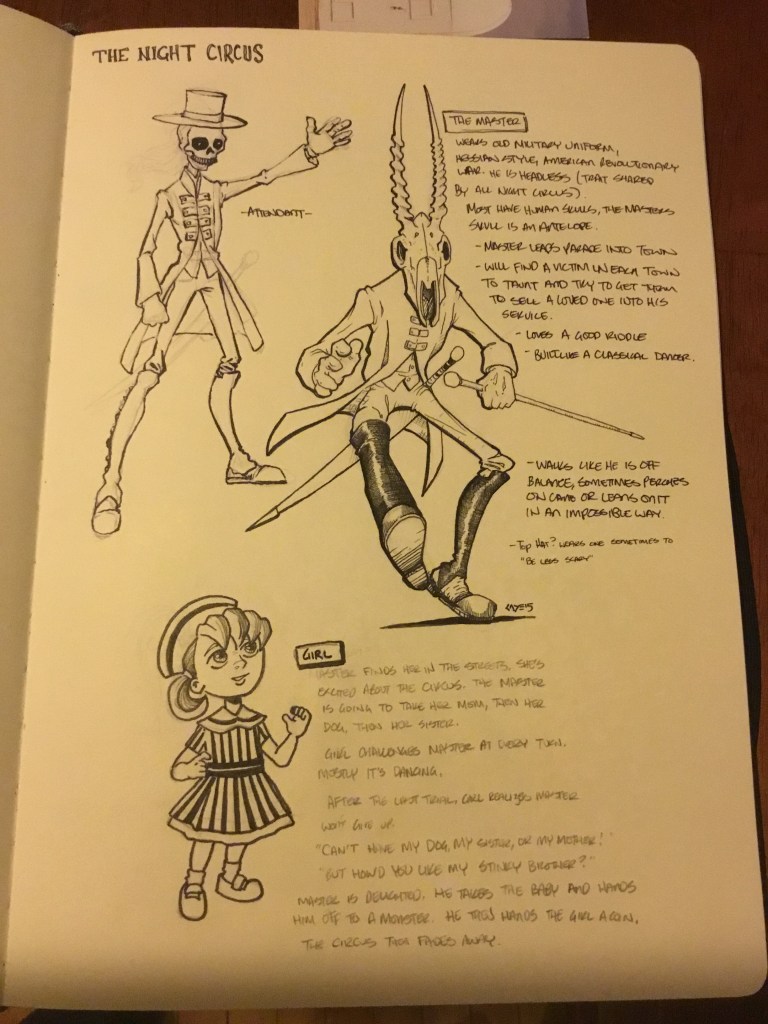 THE NIGHT CIRCUS
-ATTENDENT-
THE MASTER
WEARS OLD MILITARY UNIFORM,
HESSIAN STYLE, AMERICAN REVOLUTIONARY
WAR. HE IS HEADLESS (TRAIT SHARED
BY ALL NIGHT CIRCUS)
MOST HAVE HUMAN SKULLS, THE MASTERS
SKULL IS AN ANTELOPE.
- MASTER LEADS PARADE INTO TOWN
- WILL FIND A VICTIM IN EACH TOWN
TO TAUNT AND TRY TO GET THEM
TO SELL A LOVED ONE INTO HIS
SERVICE.
- LOVES A GOOD RIDDLE
- BUILT LIKE A CLASSICAL DANCER.
- WALKS LIKE HE IS OFF
BALANCE, SOMETIMES PERCHES
ON CANE OR LEANS ON IT
IN AN IMPOSSIBLE WAY.
- TOP HAT? WEARS ONE SOMETIMES TO
"BE LESS SCARY"
GIRL
MASTER FINDS HER IN THE STREETS, SHE'S
EXCITED ABOUT THE CIRCUS. THE MASTER
IS GOING TO TAKE HER MOM, THEN HER
DOG, THEN HER SISTER.
GIRL CHALLENGES MASTER AT EVERY TURN.
MOSTLY IT'S DANCING.
AFTER THE LAST TRIAL, GIRL REALIZES MASTER
WON'T GIVE UP.
"CAN'T HAVE MY DOG, MY SISTER, OR MY MOTHER!"
"BUT HOW'D YOU LIKE MY STINKY BROTHER?"
MASTER IS DELIGHTED. HE TAKES THE BABY AND HANDS
HIM OFF TO A MONSTER. HE THEN HANDS THE GIRL A COIN,
THE CIRCUS THEN FADES AWAY.